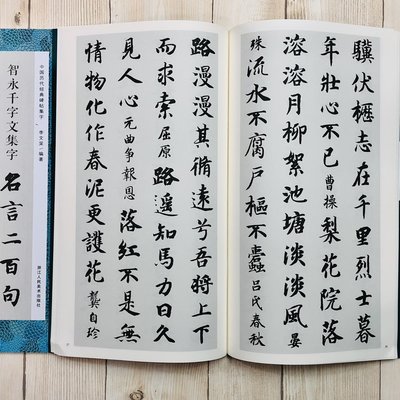 驥伏櫪志在千里烈士暮
年壯心不已 曹操 梨花院落
溶溶月柳絮池塘淡淡風 晏
殊 流水不腐户樞不蠹 呂氏春秋
路漫漫其脩遠兮吾將上下
而求索 屈原 路遥知馬力日久
見人心 元曲爭報恩 落紅不是無
情物化作春泥更護花 龔自珍
中国历代经典碑帖集字·李文采 编著
智永千字文集字
名言二百句
浙江人民美术出版社